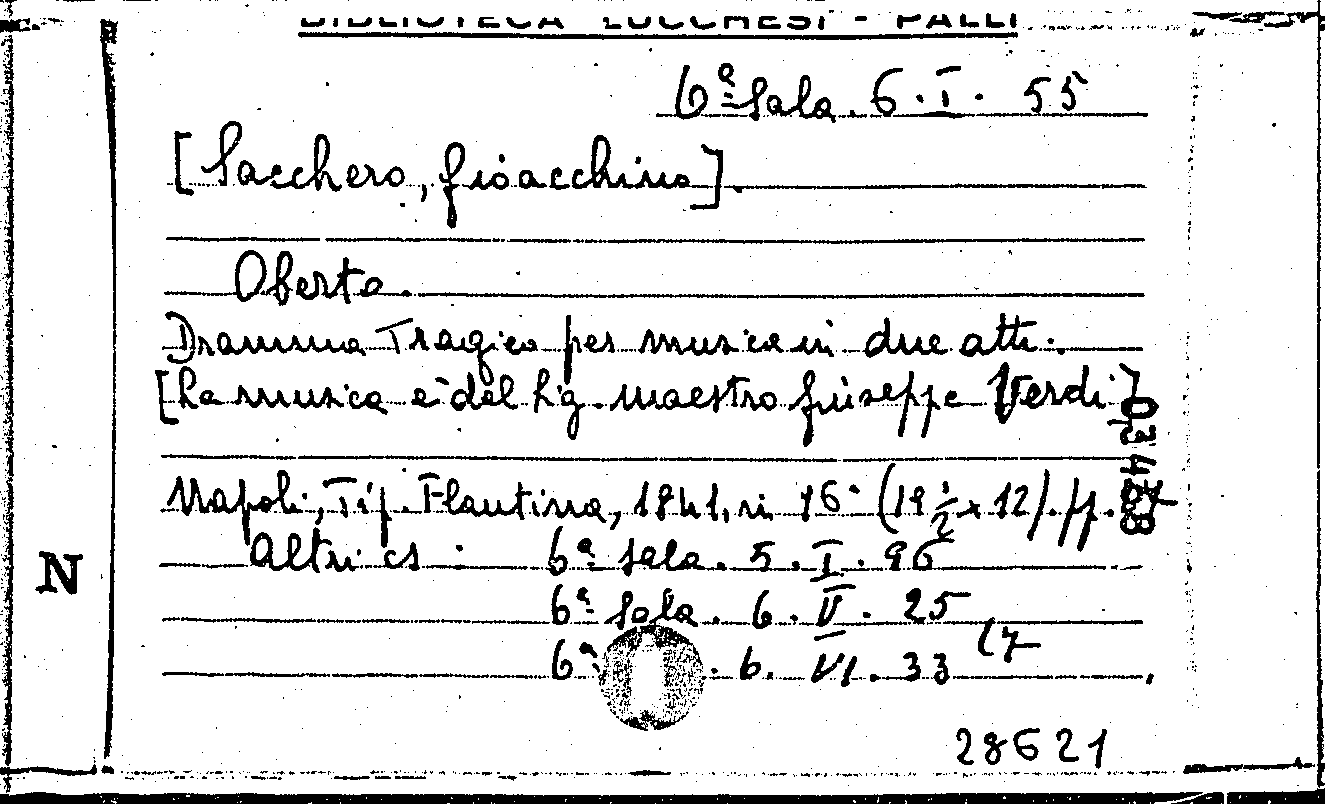 BIBLIOTECA LUCCHESI - PALLI
6ª Sala. 6. I. 55
[Sacchero, Gioacchino].
Oberto.
Dramma Tragico per musica in due atti.
[La musica è del Sig. maestro Giuseppe Verdi]
Napoli, Tip. Flautina, 1841, in 16° (19 1/2 x 12). pp.
Altri es: 6ª Sala. 5. I. 96
6ª Sala. 6. V. 25
6ª . 6. VI. 33 (7
N
28621